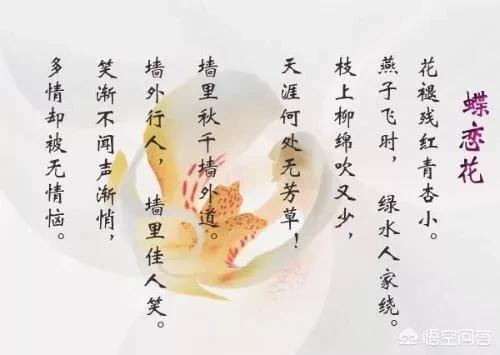 蝶恋花
花褪残红青杏小。
燕子飞时，绿水人家绕。
枝上柳绵吹又少，
天涯何处无芳草！
墙里秋千墙外道。
墙外行人，墙里佳人笑。
笑渐不闻声渐悄，
多情却被无情恼。
悟空问答